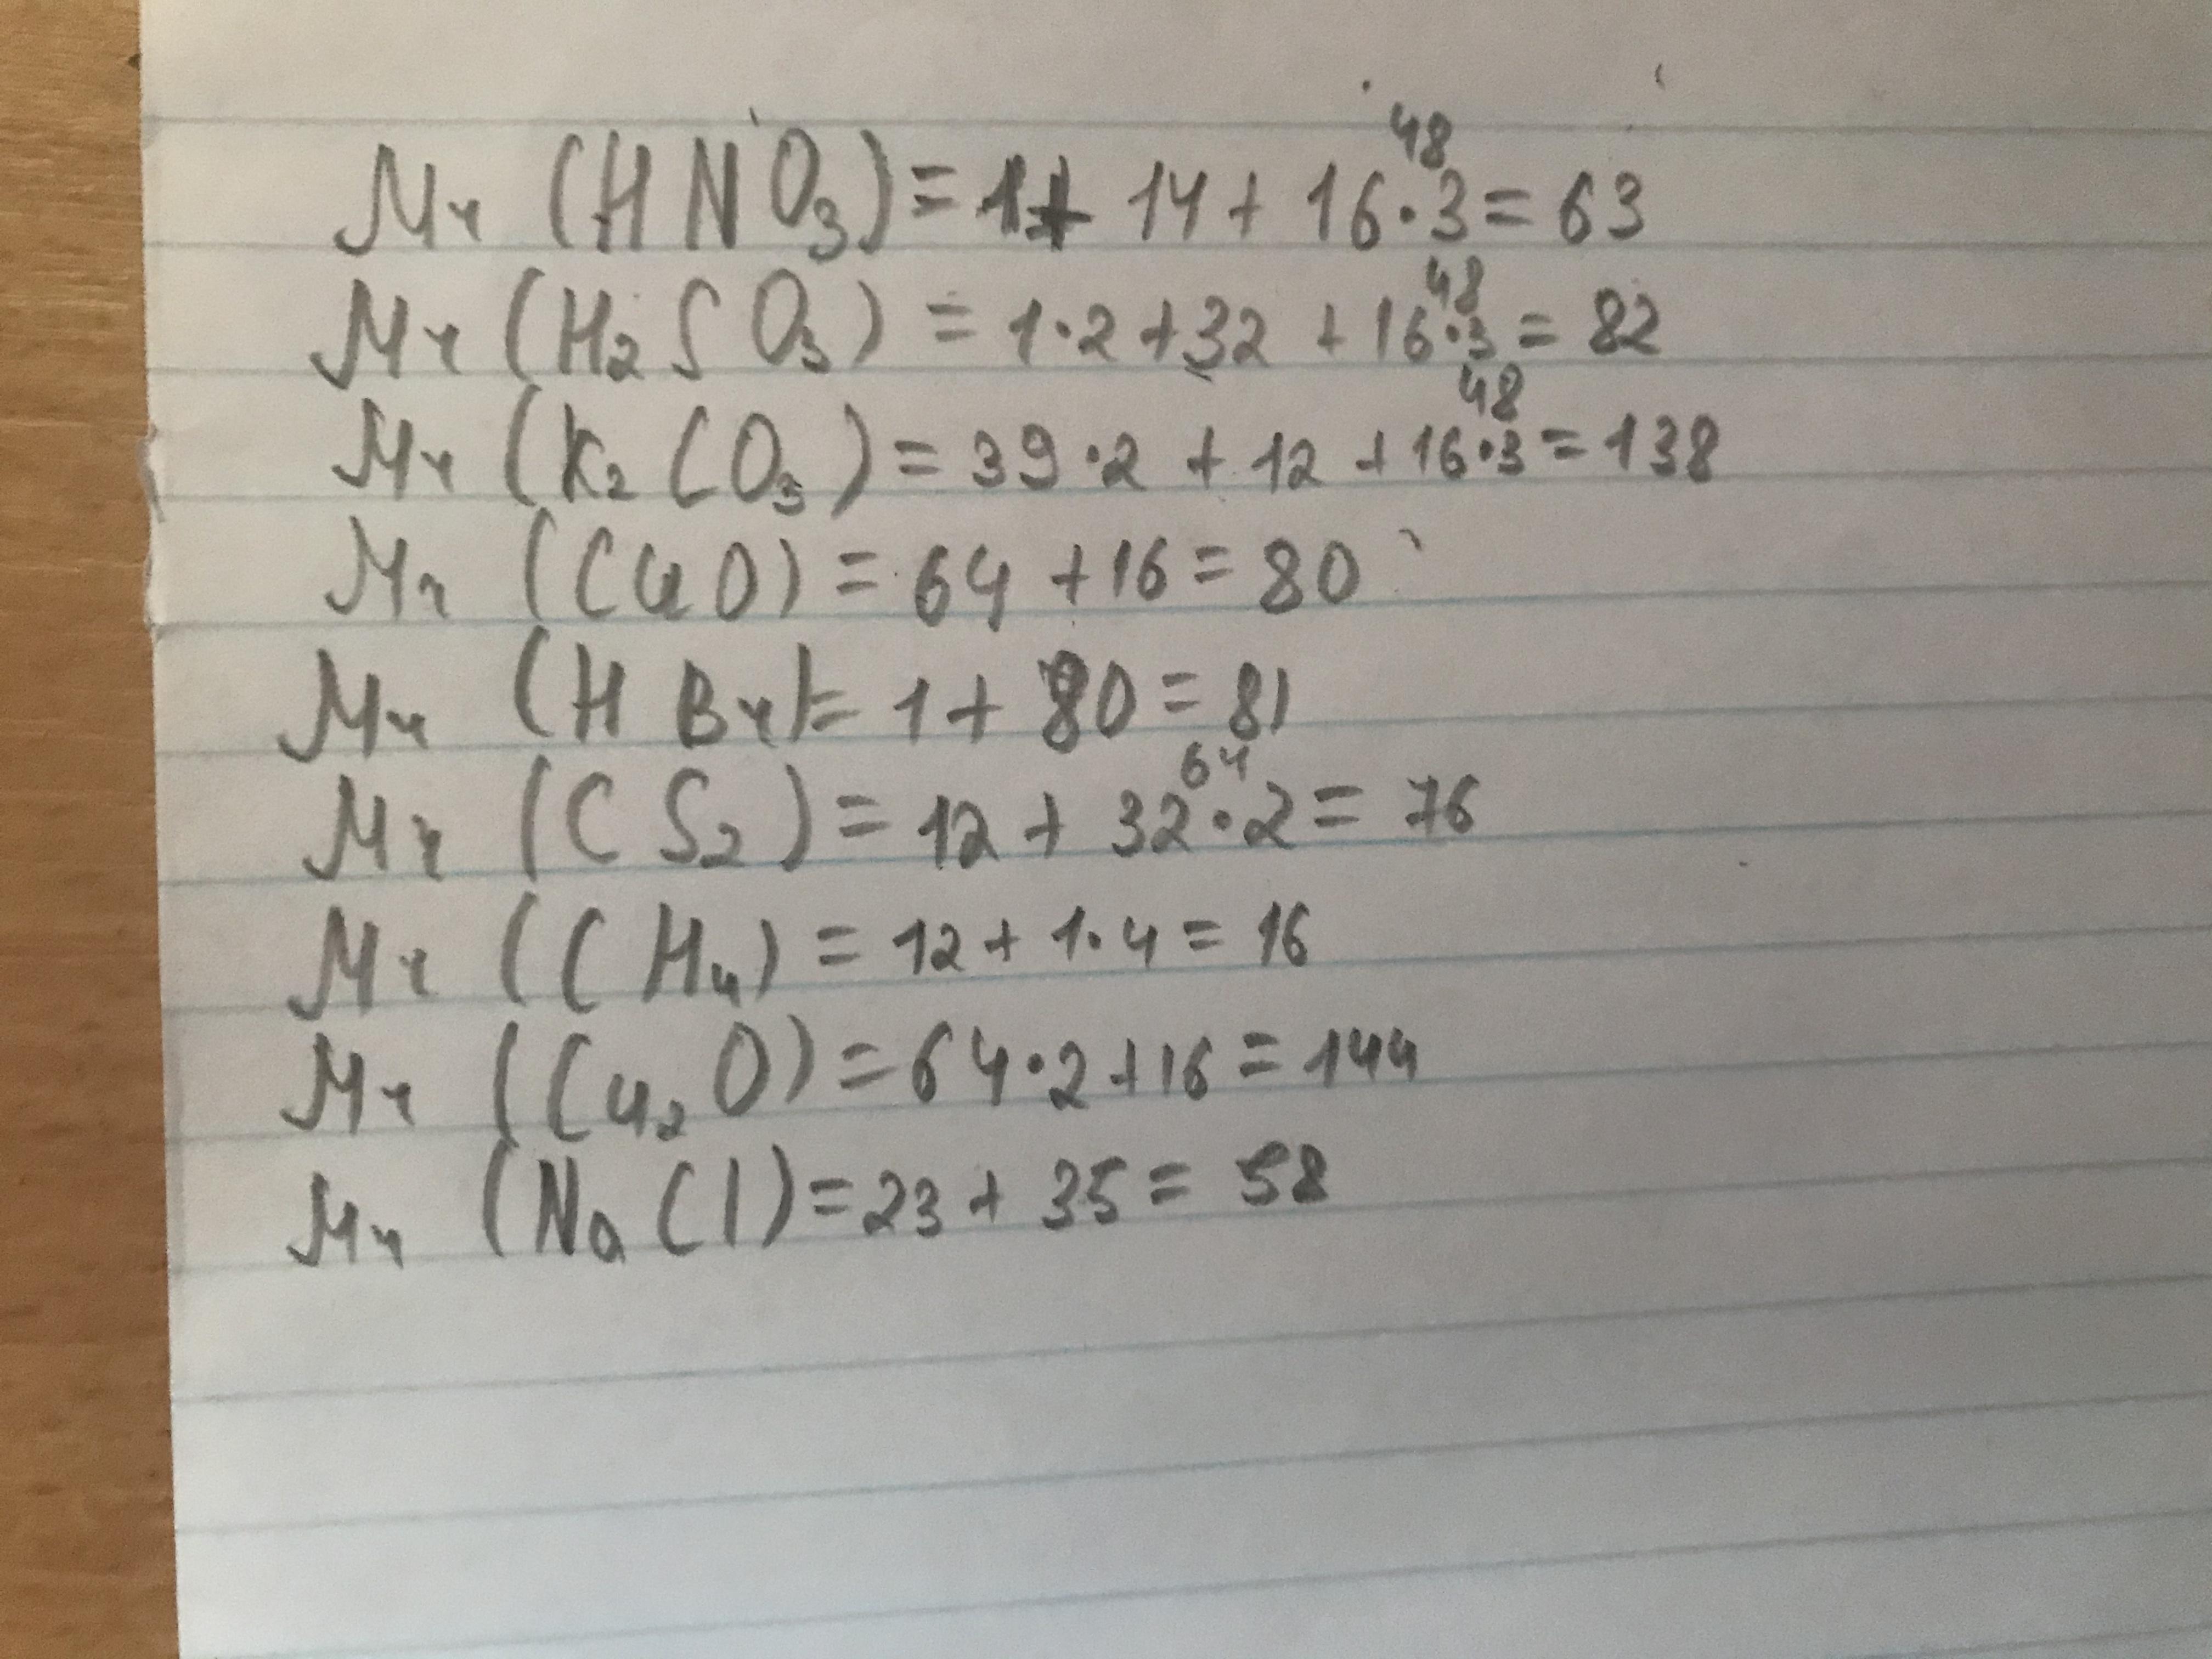 Mr (HNO₃) = 1 + 14 + 16·3 = 63
48
Mr (H₂SO₃) = 1·2 + 32 + 16·3 = 82
48
Mr (K₂CO₃) = 39·2 + 12 + 16·3 = 138
48
Mr (CuO) = 64 + 16 = 80
Mr (HBr) = 1 + 80 = 81
Mr (CS₂) = 12 + 32·2 = 76
64
Mr (CH₄) = 12 + 1·4 = 16
Mr (Cu₂O) = 64·2 + 16 = 144
Mr (NaCl) = 23 + 35 = 58